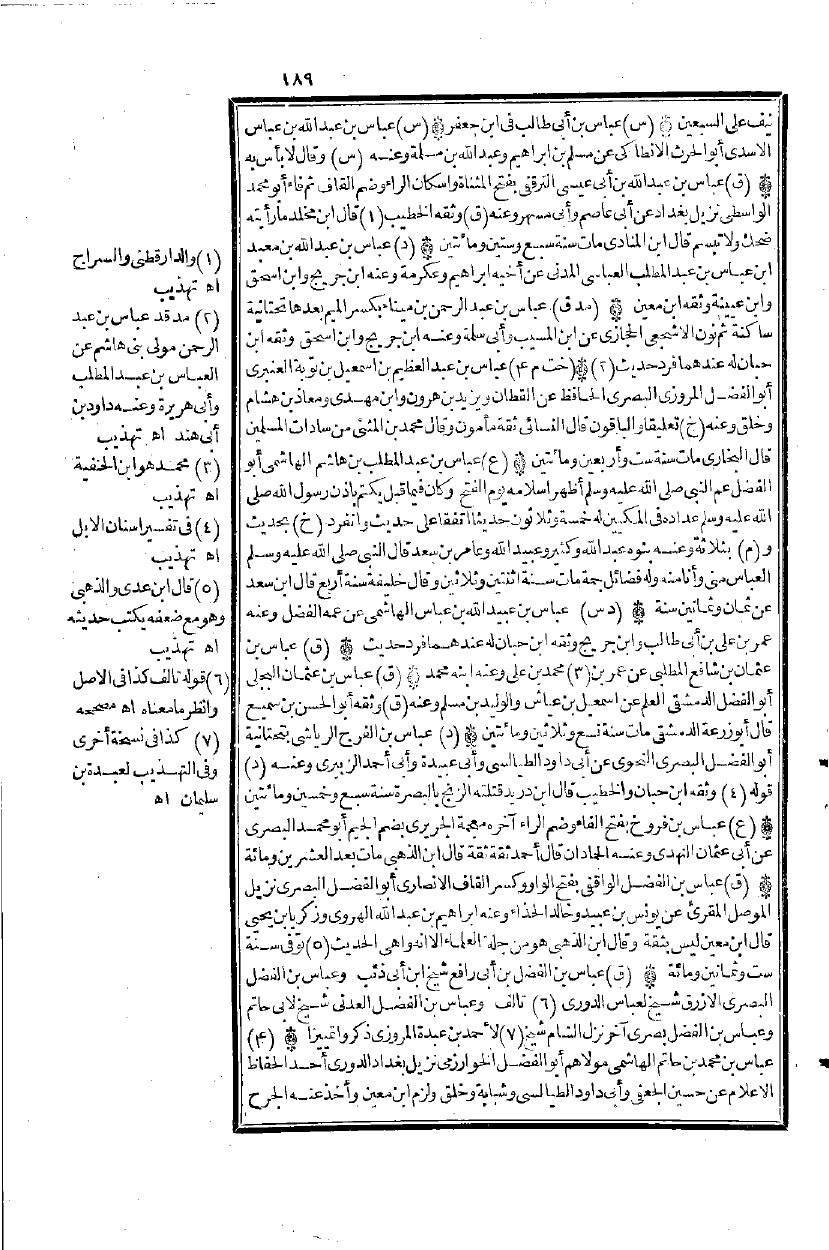 ١٨٩
نيف على السبعين (س) عباس بن أبى طالب فى ابن جعفر (س) عباس بن عبد الله بن عباس
الاسدى أبو الحرث الانطاكى عن مسلم بن ابراهيم وعبد الله بن مسلمة وعنه (س) وقال لا بأس به
(ق) عباس بن عبد الله بن أبى عيسى الترقفى بفتح المثناة واسكان الراء وضم القاف ثم فاء أبو محمد
الواسطى نزيل بغداد عن أبى عاصم وأبى مسهر وعنه (ق) وثقه الخطيب (١) قال ابن مخلد ما رأيته
ضحك ولا تبسم قال ابن المنادى مات سنة سبع وستين ومائتين (د) عباس بن عبد الله بن معبد
ابن عباس بن عبد المطلب العباسى المدنى عن أخيه ابراهيم وعكرمة وعنه ابن جريج وابن اسحق
وابن عيينة وثقه ابن معين (مد ق) عباس بن عبد الرحمن بن ميناء بكسر الميم بعدها تحتانية
ساكنة ثم نون الاشجعى الحجازى عن ابن المسيب وأبى سلمة وعنه ابن جريج وابن اسحق وثقه ابن
حبان له عندهما فرد حديث (٢) (خت م ٤) عباس بن عبد العظيم بن اسمعيل بن توبة العنبرى
أبو الفضل المروزى البصرى الحافظ عن القطان ويزيد بن هرون وابن مهدى ومعاذ بن هشام
وخلق وعنه (خ) تعليقا والباقون قال النسائى ثقة مأمون وقال محمد بن المثنى من سادات المسلمين
قال البخارى مات سنة ست وأربعين ومائتين (ع) عباس بن عبد المطلب بن هاشم الهاشمى أبو
الفضل عم النبى صلى الله عليه وسلم أظهر اسلامه يوم الفتح وكان فيما قيل يكتم باذن رسول الله صلى
الله عليه وسلم عداده فى المكيين له خمسة وثلاثون حديثا اتفقا على حديث وانفرد (خ) بحديث
و (م) بثلاثة وعنه بنوه عبد الله وكثير وعبيد الله وعامر بن سعد قال النبى صلى الله عليه وسلم
العباس منى وأنا منه وله فضائل جمة مات سنة اثنتين وثلاثين وقال خليفة سنة أربع قال ابن سعد
عن ثمان وثمانين سنة (د س) عباس بن عبيد الله بن عباس الهاشمى عن عمه الفضل وعنه
عمر بن على بن أبى طالب وابن جريج وثقه ابن حبان له عندهما فرد حديث (ق) عباس بن
عثمان بن شافع المطلبى عن عمر بن (٣) محمد بن على وعنه ابنه محمد (ق) عباس بن عثمان البجلى
أبو الفضل الدمشقى المعلم عن اسمعيل بن عياش والوليد بن مسلم وعنه (ق) وثقه أبو الحسن بن سميع
قال أبو زرعة الدمشقى مات سنة تسع وثلاثين ومائتين (د) عباس بن الفرج الرياشى بتحتانية
أبو الفضل البصرى النحوى عن أبى داود الطيالسى وأبى عبيدة وأبى أحمد الزبيرى وعنه (د)
قوله (٤) وثقه ابن حبان والخطيب قال ابن دريد قتلته الزنج بالبصرة سنة سبع وخمسين ومائتين
(ع) عباس بن فروخ بفتح الفاء وضم الراء آخره معجمة الجريرى بضم الجيم أبو محمد البصرى
عن أبى عثمان النهدى وعنه الحمادان قال أحمد ثقة ثقة قال ابن الذهبى مات بعد العشرين ومائة
(ق) عباس بن الفضل الواقفى بفتح الواو وكسر القاف الانصارى أبو الفضل البصرى نزيل
الموصل المقرئ عن يونس بن عبيد وخالد الحذاء وعنه ابراهيم بن عبد الله الهروى وزكريا بن يحيى
قال ابن معين ليس بثقة وقال ابن الذهبى هو من جلة العلماء الا انه واهى الحديث (٥) توفى سنة
ست وثمانين ومائة (ق) عباس بن الفضل بن أبى رافع شيخ ابن أبى ذئب وعباس بن الفضل
البصرى الازرق شيخ لعباس الدورى (٦) تالف وعباس بن الفضل العدنى شيخ لابى حاتم
وعباس بن الفضل بصرى آخر نزل الشام شيخ (٧) لاحمد بن عبدة المروزى ذكروا تمييزا (٤)
عباس بن محمد بن حاتم الهاشمى مولاهم أبو الفضل الخوارزمى نزيل بغداد الدورى أحد الحفاظ
الاعلام عن حسين الجعفى وأبى داود الطيالسى وشبابة وخلق ولزم ابن معين وأخذ عنه الجرح
(١) والدارقطنى والسراج
اه تهذيب
(٢) مد قد عباس بن عبد
الرحمن مولى بنى هاشم عن
العباس بن عبد المطلب
وأبى هريرة وعنه داود بن
أبى هند اه تهذيب
(٣) محمد هو ابن الحنفية
اه تهذيب
(٤) فى تفسير اسنان الابل
اه تهذيب
(٥) قال ابن عدى والذهبى
وهو مع ضعفه يكتب حديثه
اه تهذيب
(٦) قوله تالف كذا فى الاصل
وانظر ما معناه اه مصححه
(٧) كذا فى نسخة أخرى
وفى التهذيب لعبدة بن
سليمان اه